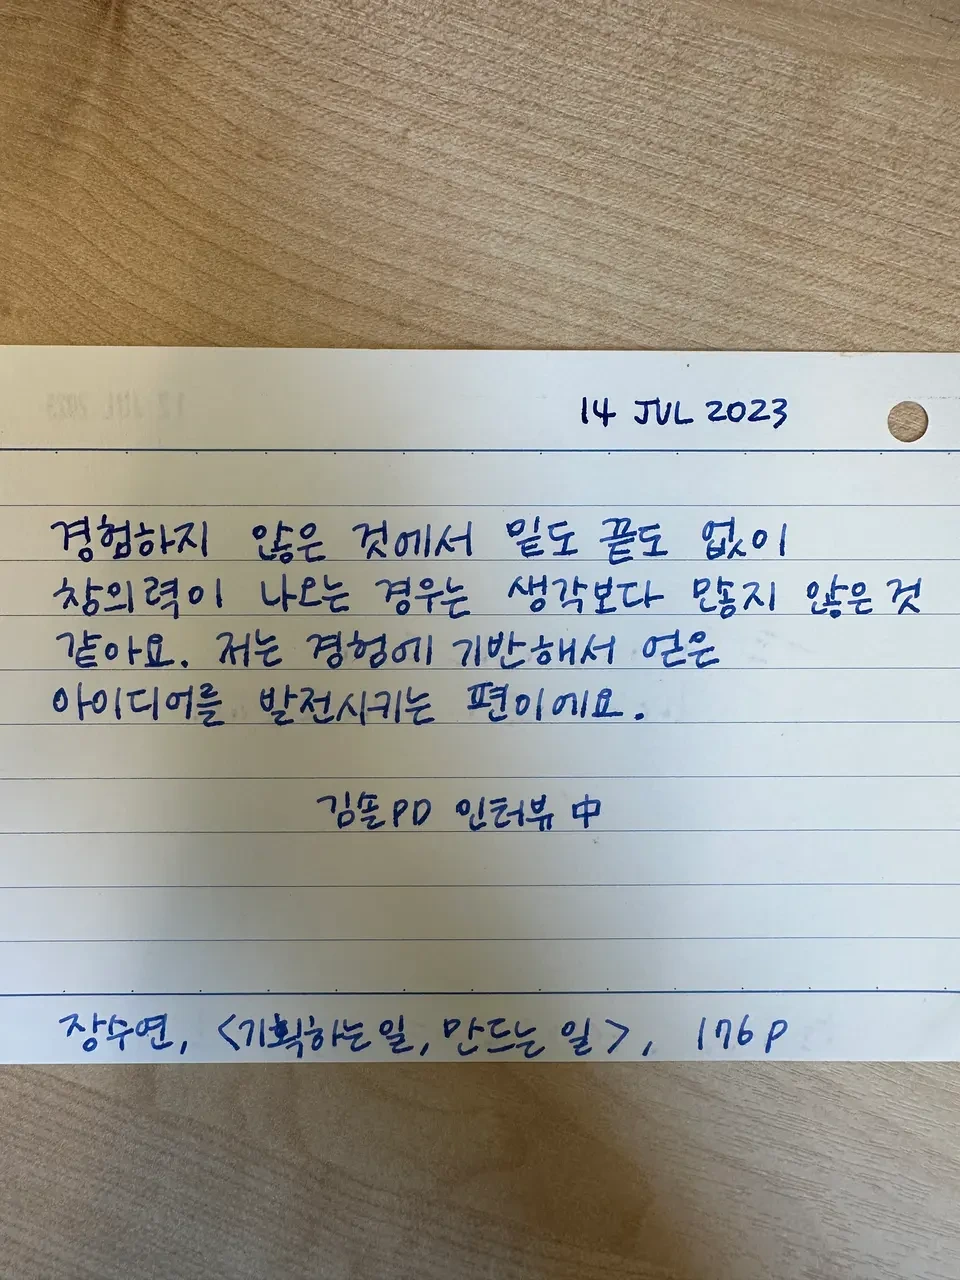 14 JUL 2023
경험하지 않은 것에서 밑도 끝도 없이
창의력이 나오는 경우는 생각보다 많지 않은 것
같아요. 저는 경험에 기반해서 얻은
아이디어를 발전시키는 편이에요.
김솔PD 인터뷰 中
장수연, <기획하는 일, 만드는 일>, 176p